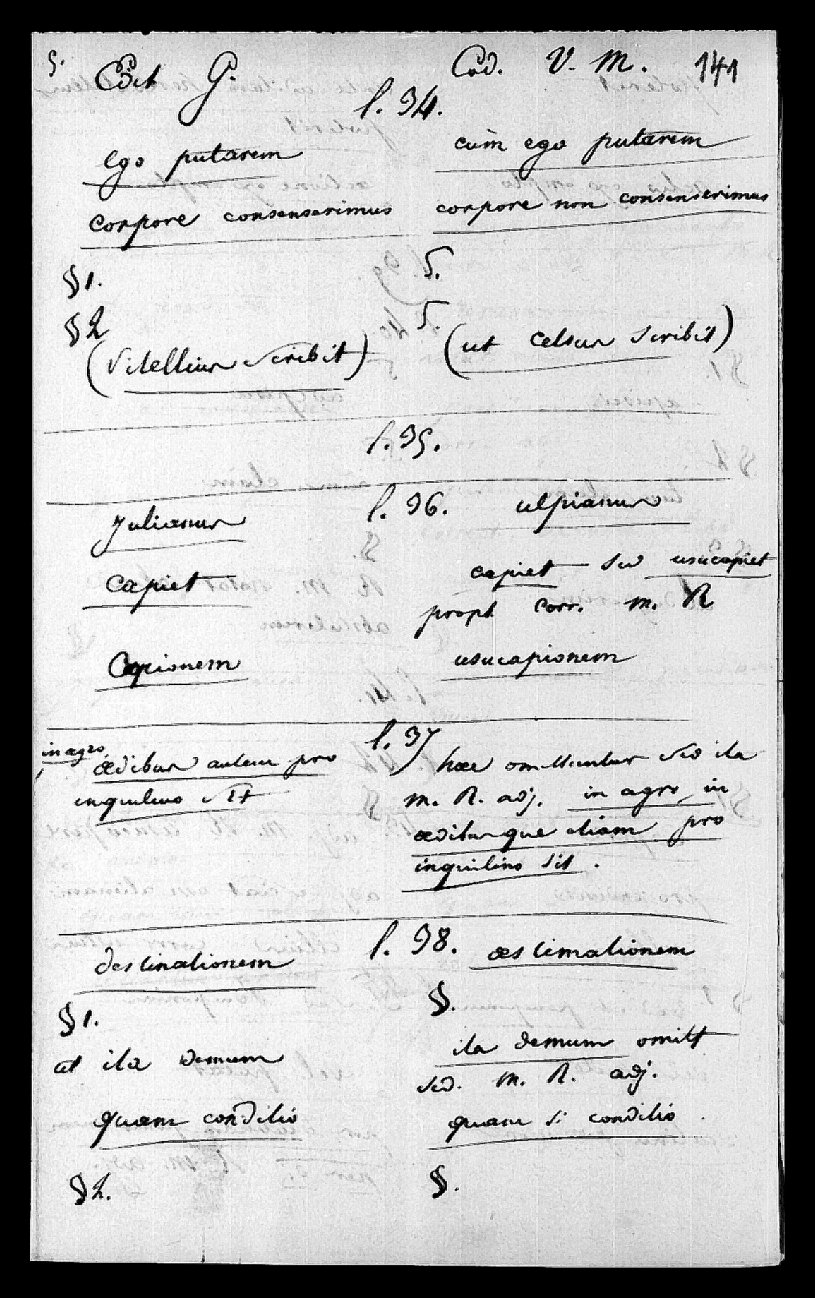 5.
Edit G. Cod. V. M. 141
l. 34.
ego putarem cum ego putarem
corpore consenserimus corpore non consenserimus
§1. §.
§2 §
(Vitellius scribit) (ut Celsus scribit)
l. 35.
Julianus l. 36. ulpianus
capiet capiet sed usucapiet
propt corr. m. R
Capionem usucapionem
l. 37
in agro,
ædibus autem pro
inquilino sit
hæc omittuntur sed ita
m. R. adj. in agro, in
ædibusque etiam pro
inquilino sit.
l. 38.
destinationem æstimationem
§1. §.
at ita demum ita demum omitt
sed. m. R. adj.
quam conditio quam si conditio.
§2. §.